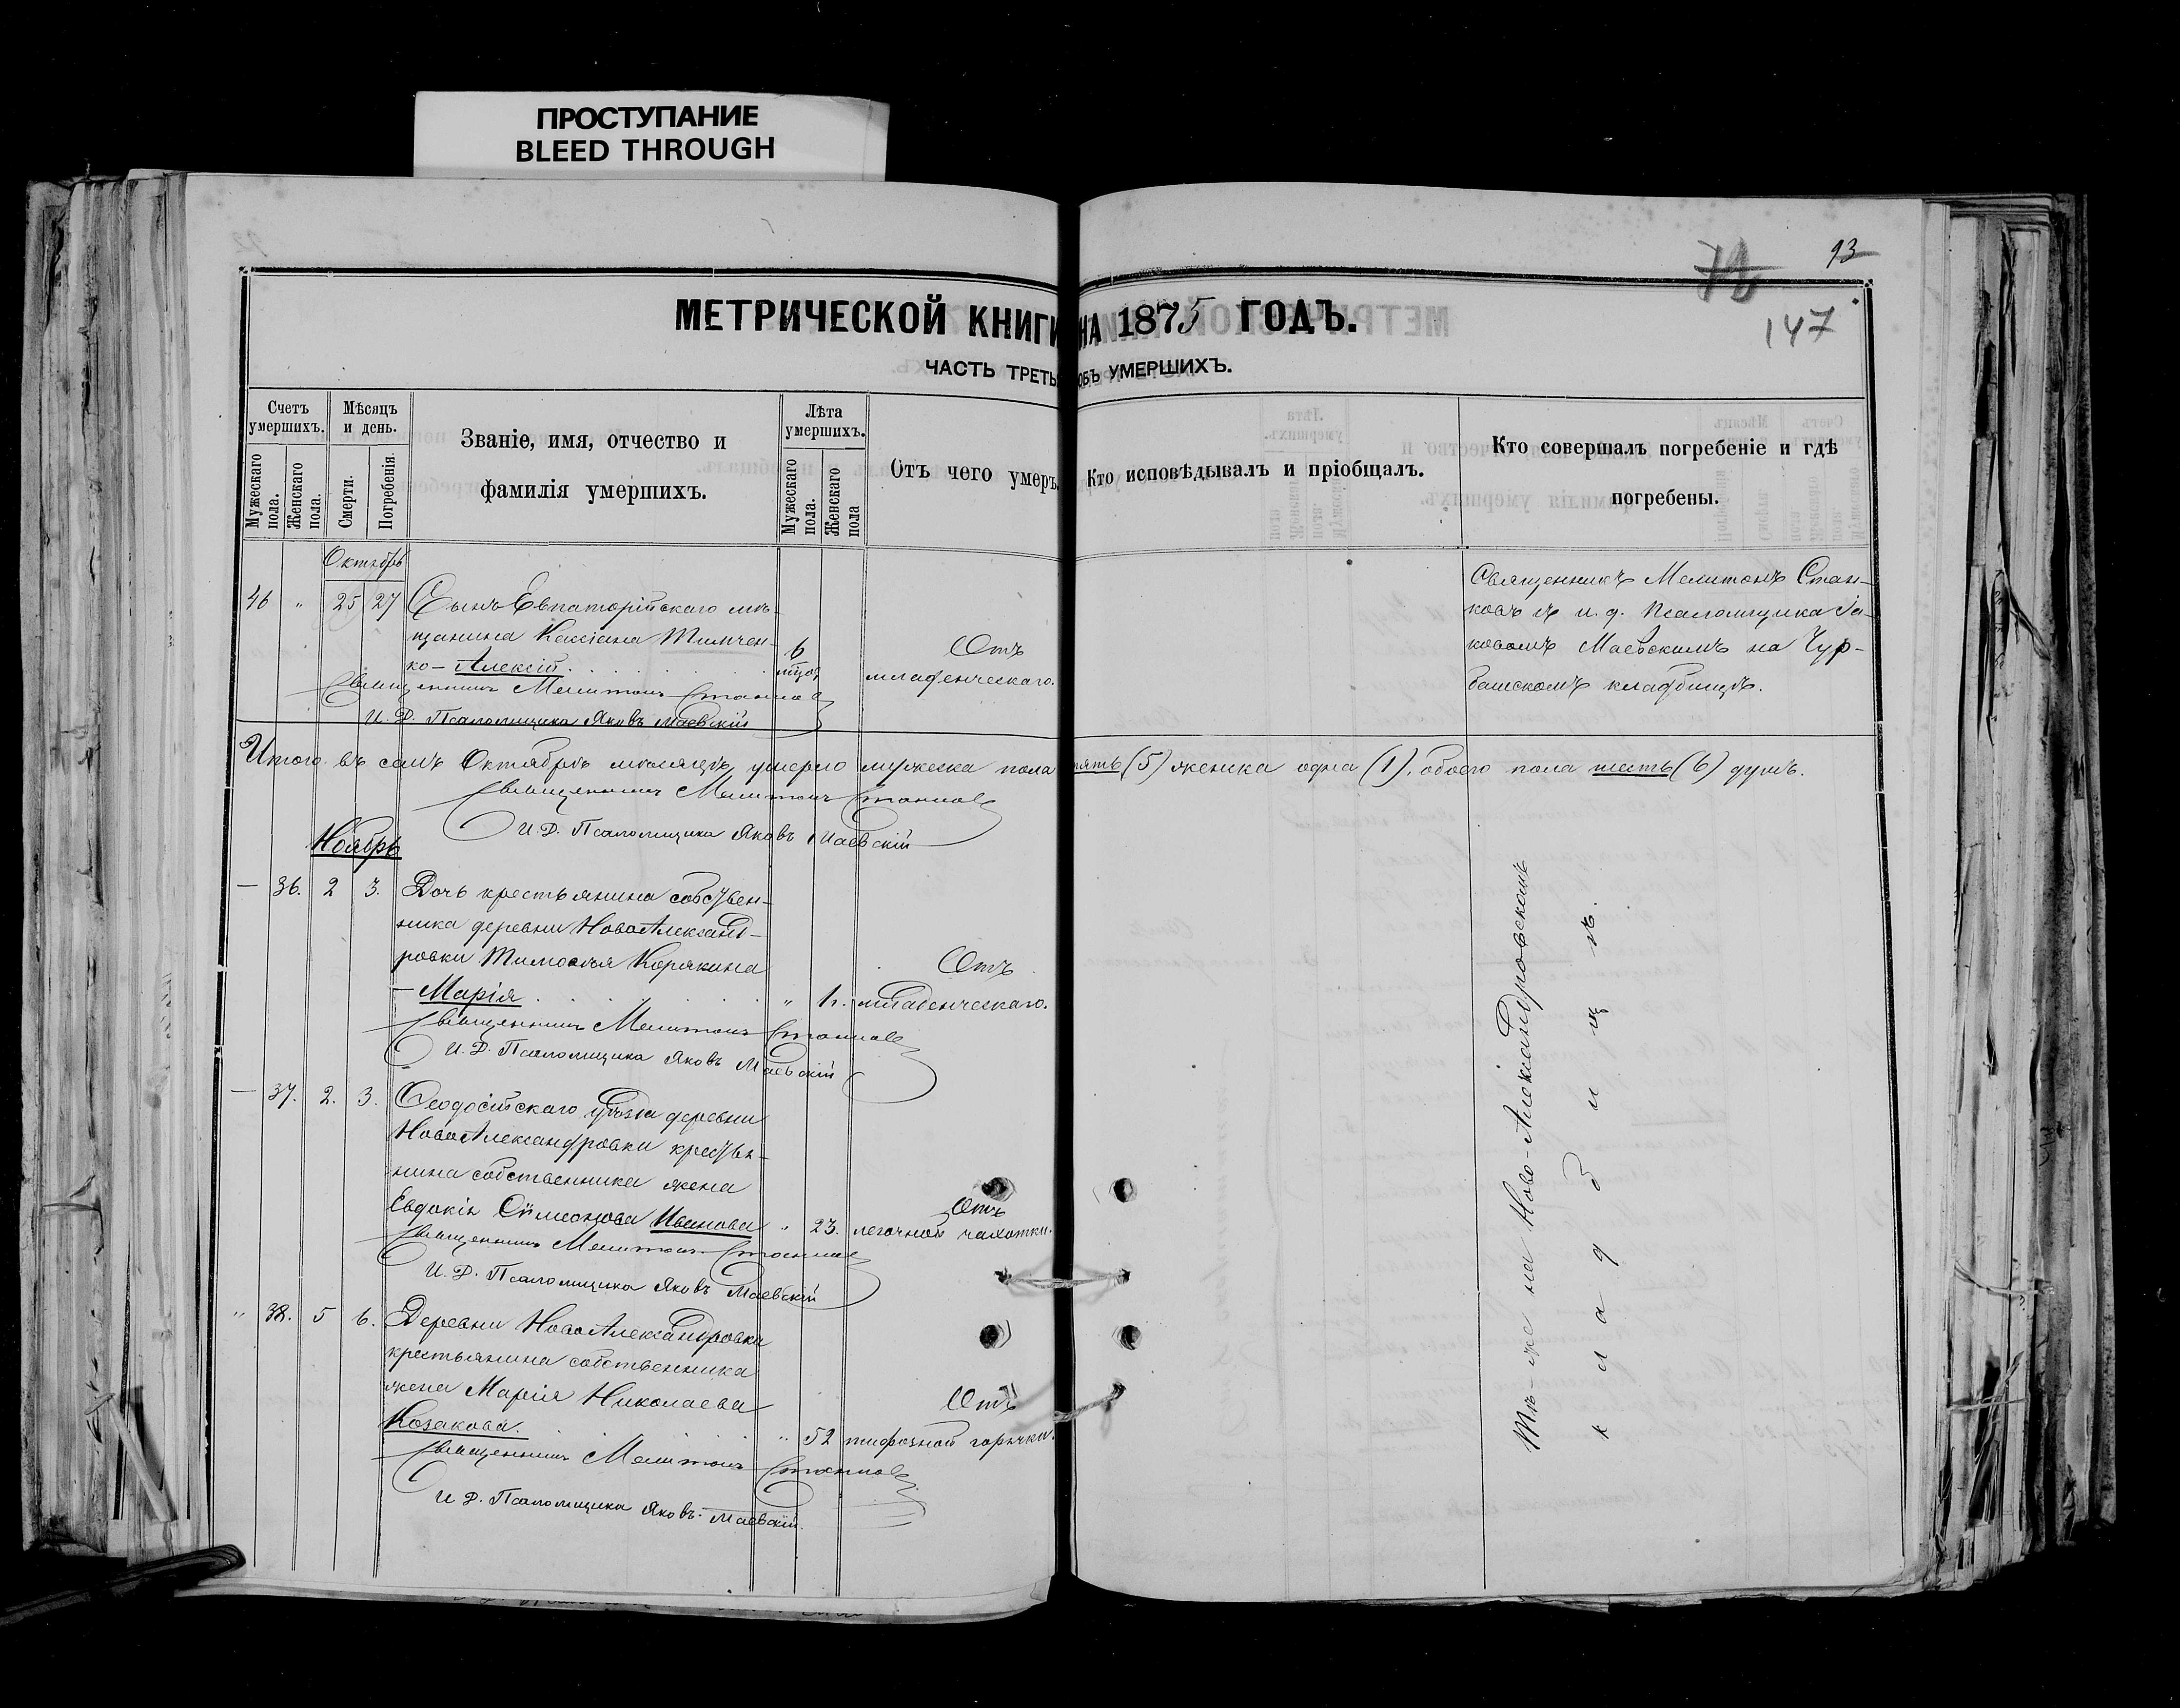 ПРОСТУПАНИЕ
BLEED THROUGH
93
147
МЕТРИЧЕСКОЙ КНИГИ НА 1875 ГОДЪ.
ЧАСТЬ ТРЕТЬ ОБЪ УМЕРШИХЪ.
Счетъ умершихъ.
Мужескаго пола.
Женскаго пола.
Мѣсяцъ и день.
Смерти.
Погребенія.
Званіе, имя, отчество и
фамилія умершихъ.
Лѣта умершихъ.
Мужескаго пола.
Женскаго пола
Отъ чего умеръ.
Кто исповѣдывалъ и пріобщалъ.
Кто совершалъ погребеніе и гдѣ
погребены.
Октябрь
46 " 25 27 Сынъ Евпаторійскаго мѣ-
щанина Кассіана Тимчен-
ко - Алексій 6
Отъ
младенческаго.
Священникъ Мелитонъ Станковъ
И. Д. Псаломщика Яковъ Маевскій
Священникъ Мелитонъ Стан-
ковъ съ и. д. Псаломщика Іа-
ковомъ Маевскимъ на Чур-
башскомъ кладбищѣ.
Итого въ семъ Октябрѣ мѣсяцѣ умерло мужеска пола пять (5) женска одна (1), обоего пола шесть (6) душъ.
Священникъ Мелитонъ Станковъ
И. Д. Псаломщика Яковъ Маевскій
Ноябрь
— 36. 2 3. Дочь крестьянина собствен-
ника деревни НовоАлександ-
ровки Тимофея Корякина
- Марія " 1 г.
Отъ
младенческаго.
Священникъ Мелитонъ Станковъ
И. Д. Псаломщика Яковъ Маевскій
— 37. 2. 3. Ѳеодосійскаго уѣзда деревни
НовоАлександровки крестья-
нина собственника жена
Евдокія Сѵмеонова Иванова " 23.
Отъ
легочной чахотки.
Священникъ Мелитонъ Станковъ
И. Д. Псаломщика Яковъ Маевскій
" 38. 5 6. Деревни НовоАлександровки
крестьянина собственника
жена Марія Николаева
Козакова. " 52
Отъ
тифозной горячки.
Священникъ Мелитонъ Станковъ
И. Д. Псаломщика Яковъ Маевскій.
Тѣ-же на Ново-Александровскомъ
кладбищѣ.